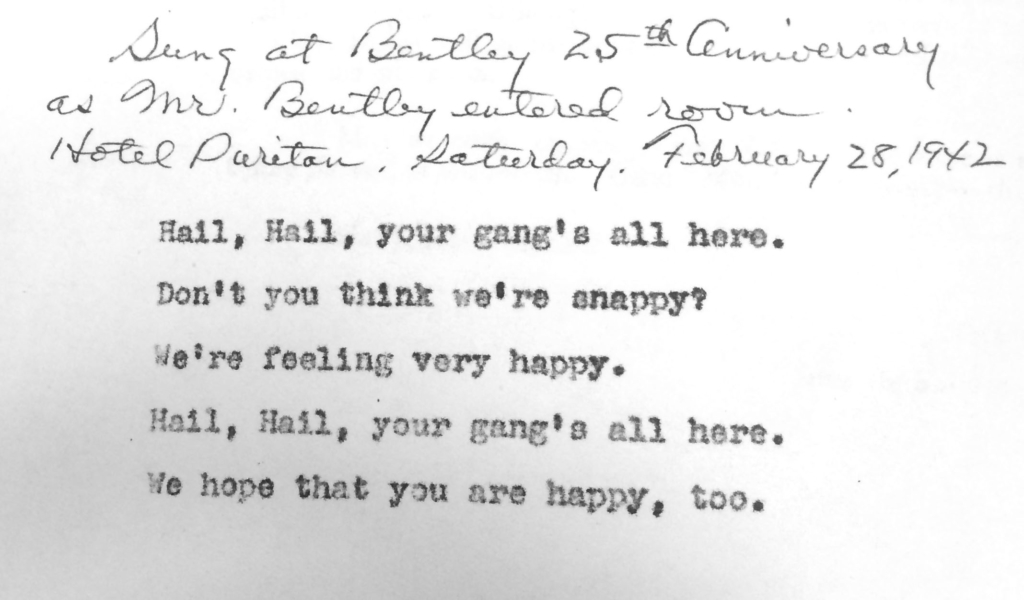 Sung at Bentley 25th Anniversary
as Mr. Bentley entered room.
Hotel Puritan, Saturday, February 28, 1942
Hail, Hail, your gang's all here.
Don't you think we're snappy?
We're feeling very happy.
Hail, Hail, your gang's all here.
We hope that you are happy, too.